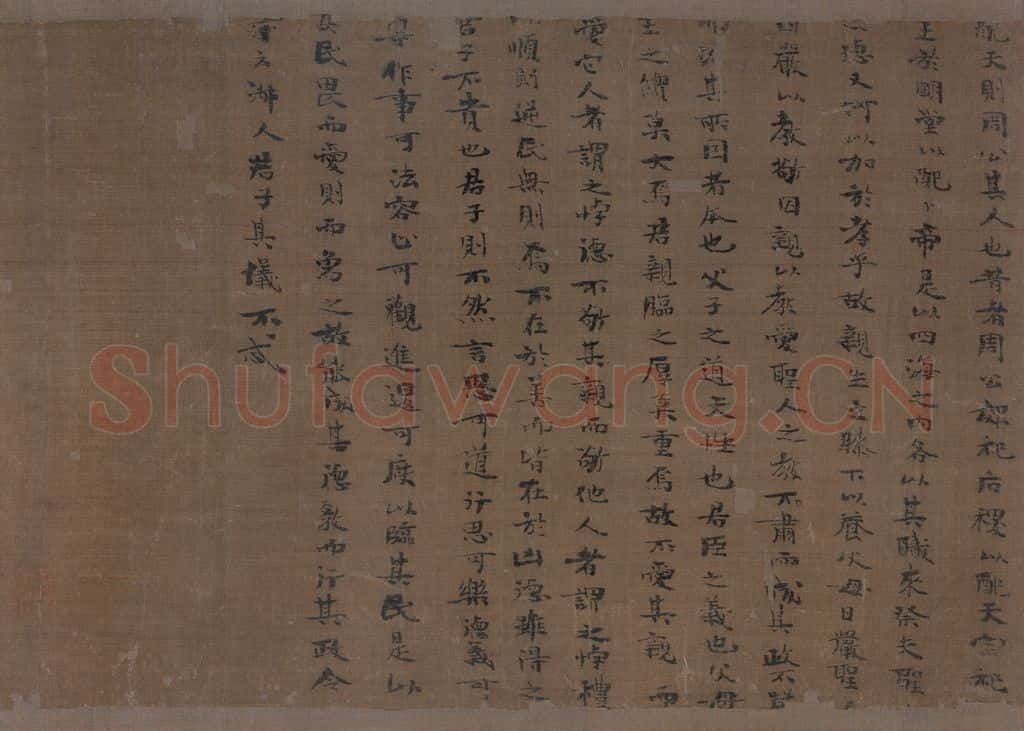 配天則周公其人也昔者周公郊祀后稷以配天宗祀
王於明堂以配上帝是以四海之內各以其職來祭夫聖
德又何以加於孝乎故親生之膝下以養父母日嚴聖
因嚴以教敬因親以教愛聖人之教不肅而成其政不嚴
其所因者本也父子之道天性也君臣之義也父母
生之續莫大焉君親臨之厚莫重焉故不愛其親而
愛它人者謂之悖德不敬其親而敬他人者謂之悖禮
順則逆民無則焉不在於善而皆在於凶德雖得之
君子不貴也君子則不然言思可道行思可樂德義可
尊作事可法容止可觀進退可度以臨其民是以
其民畏而愛則而象之故能成其德教而行其政令
詩云淑人君子其儀不忒
Shufawang.CN